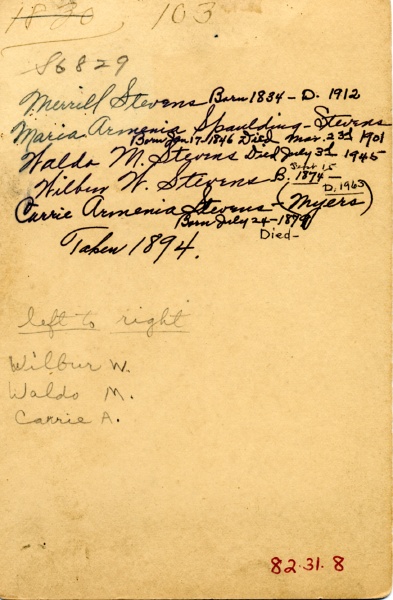 1830 103
S6829
Merrill Stevens Born 1834 - D. 1912
Maria Armenia Spaulding - Stevens
Born Jan-17-1846 Died Mar. 23d 1901
Waldo M. Stevens Died July 3d 1945
Wilbur W. Stevens B. Sept 15 1874 - D. 1963
Carrie Armenia Stevens - (Myers)
Born July 24 - 1879
Died -
Taken 1894.
left to right
Wilbur W.
Waldo M.
Carrie A.
82.31.8